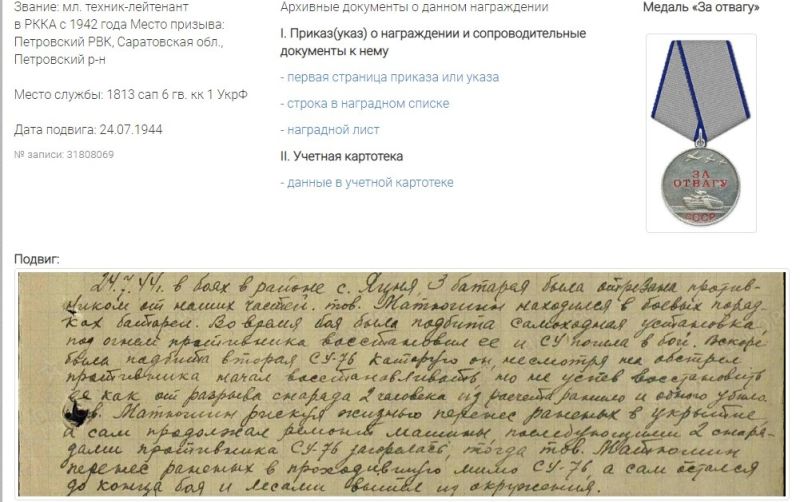 Звание: мл. техник-лейтенант
в РККА с 1942 года Место призыва:
Петровский РВК, Саратовская обл.,
Петровский р-н
Место службы: 1813 сап 6 гв. кк 1 УкрФ
Дата подвига: 24.07.1944
№ записи: 31808069
Архивные документы о данном награждении
I. Приказ(указ) о награждении и сопроводительные
документы к нему
- первая страница приказа или указа
- строка в наградном списке
- наградной лист
II. Учетная картотека
- данные в учетной картотеке
Медаль «За отвагу»
ЗА
ОТВАГУ
СССР
Подвиг:
24.7.44г. в боях в районе с. 3 батарея была отрезана против-
ником от наших частей. тов. Матюшин находился в боевых поряд-
ках батареи. Во время боя была подбита самоходная установка,
под огнем противника восстановил ее и СУ пошла в бой. Вскоре
была подбита вторая СУ-76 которую он, несмотря на обстрел
противника начал восстанавливать, но не успев восстановить
ее как от разрыва снаряда 2 человека из расчета ранило и одного убило
тов. Матюшин рискуя жизнью перенес раненых в укрытие
а сам продолжал ремонт машины последующими 2 снаря-
дами противника СУ-76 загорелась, тогда тов. Матюшин
перенес раненых в проходившую мимо СУ-76, а сам остался
до конца боя и лесами вышел из окружения.